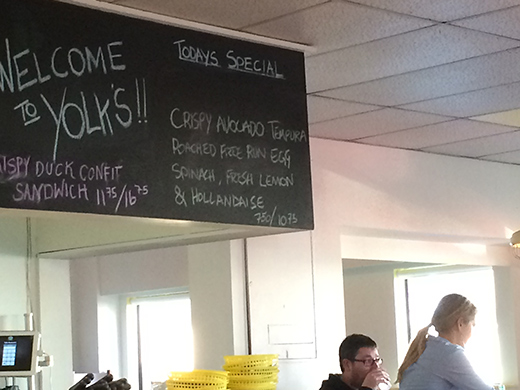 WELCOME
TO YOLK'S!!
CRISPY DUCK CONFIT
SANDWICH 11 75/16 75
TODAYS SPECIAL
CRISPY AVOCADO TEMPURA
POACHED FREE RUN EGG
SPINACH, FRESH LEMON
& HOLLANDAISE
7 50/10 75